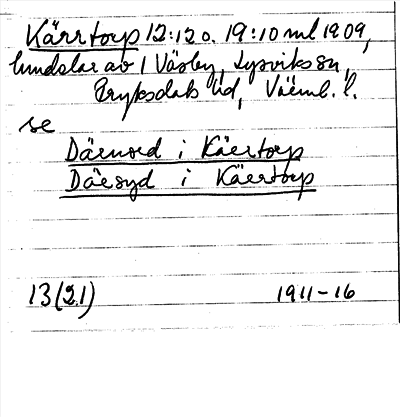 Kärrtorp 12:12 o. 19:10 ml 1909,
lundslar av 1 Väsby, Lysviks sn,
Fryksdals hd, Värml. l.
se
Därnord i Kärrtorp
Därsyd i Kärrtorp
13(21) 1911-16